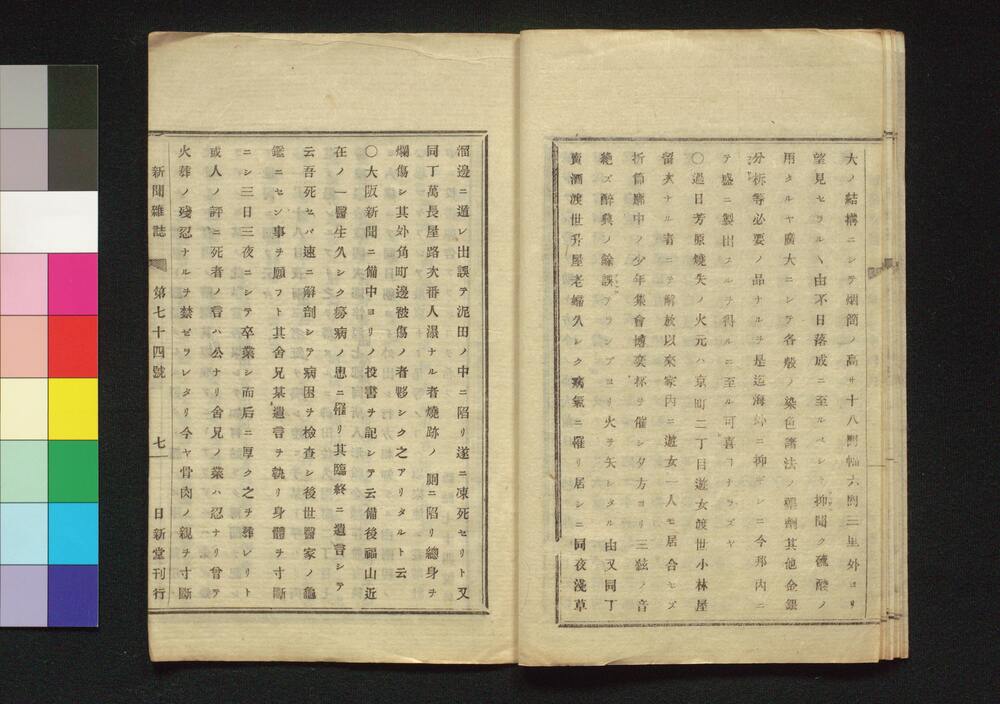 大ノ結構ニシテ烟筒ノ高サ十八間幅六間三里外ヨリ
望見セラルヽ由不日落成ニ至ルベシト抑聞ク硫酸ノ
用タルヤ廣大ニシテ各般ノ染色諸法ノ藥劑其他金銀
分柝等必要ノ品ナルヲ是迄海外ニ抑ギシニ今邦内ニ
テ盛ニ製出スルヲ得ルニ至ル可喜コナラズヤ
〇過日芳原燒失ノ火元ハ京町二丁目遊女渡世小林屋
留火ナル者ニテ解放以來家内ニ遊女一人モ居合セズ
折節廓中ノ少年集會博奕杯ヲ催シ夕方ヨリ三絃ノ音
絶ズ醉興ノ餘誤アランブヨリ火ヲ矢レタル由又同丁
賣酒渡世升屋老婦久シク病氣ニ罹リ居シニ同夜淺草
溜邊ニ遁レ出誤テ泥田ノ中ニ陷リ遂ニ凍死セリト又
同丁萬長屋路次番人濕ナル者燒跡ノ圊ニ陷リ總身ヲ
爛傷シ其外角町邊被傷ノ者夥シク之アリタルト云
〇大阪新聞ニ備中ヨリノ投書ヲ記シテ云備後福山近
在ノ一醫生久シク癆病ノ患ニ罹リ其臨終ニ遺言シテ
云吾死セバ速ニ解剖シテ病困ヲ檢査シ後世醫家ノ龜
鑑ニセン事ヲ願フト其舍兄某遺言ヲ執リ身體ヲ寸斷
ニシ三日三夜ニシテ卒業シ而后ニ厚ク之ヲ葬レリト
或人ノ評ニ死者ノ言ハ公ナリ舍兄ノ業ハ忍ナリ曾テ
火葬ノ殘忍ナルヲ禁ゼラレタリ今ヤ骨肉ノ親ヲ寸斷
新聞雜誌 第七十四號 七 日新堂刊行